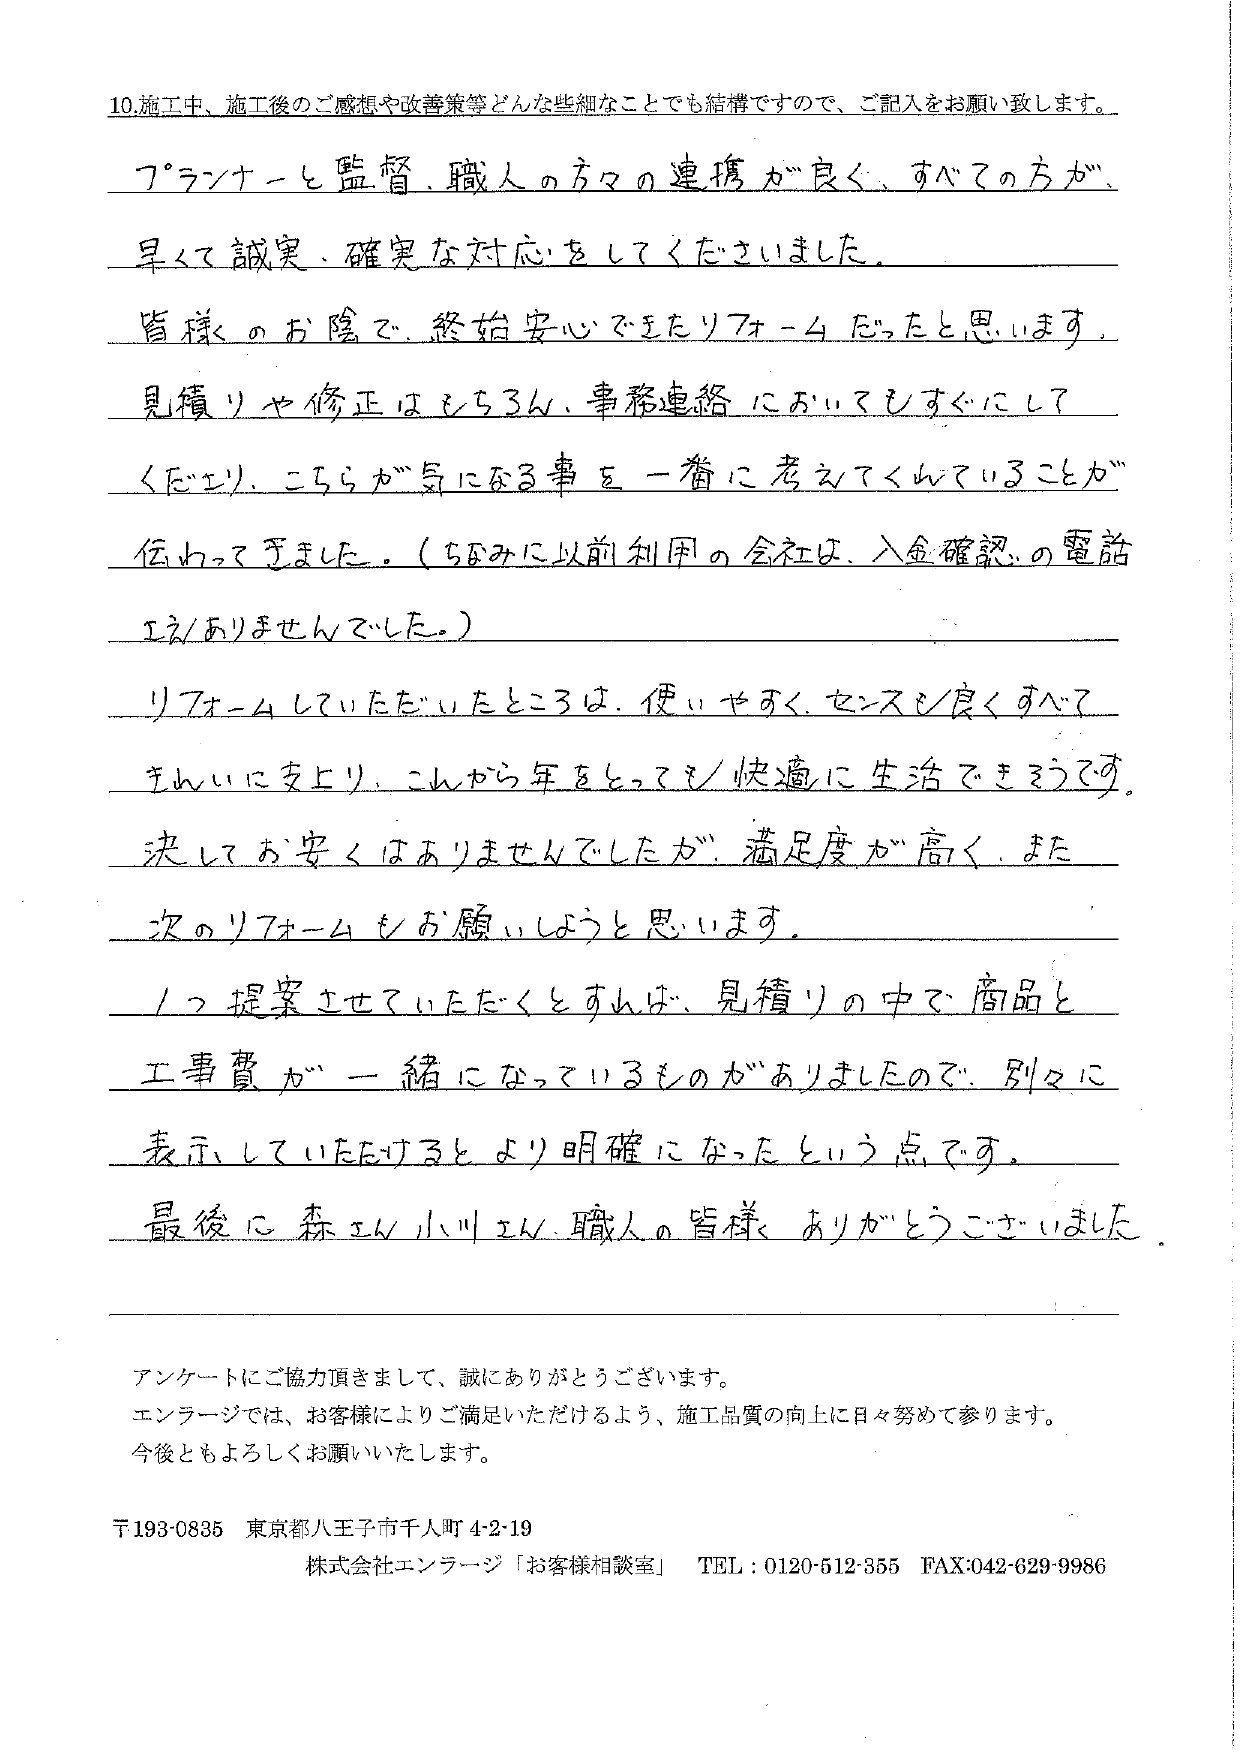 10.施工中、施工後のご感想や改善策等どんな些細なことでも結構ですので、ご記入をお願い致します。
プランナーと監督、職人の方々の連携が良く、すべての方が、
早くて誠実、確実な対応をしてくださいました。
皆様々のお陰で、終始安心できたリフォームだったと思います。
見積りや修正はもちろん、事務連絡においてもすぐにして
くださり、こちらが気になる事を一番に考えてくれていることが
伝わってきました。(ちなみに以前利用の会社は、入金確認の電話
さえありませんでした。)
リフォームしていただいたところは、使いやすく、センスも良くすべて
きれいに支上り、これから年をとっても快適に生活できそうです。
決してお安くはありませんでしたが、満足度が高く、また
次のリフォームもお願いしようと思います。
1つ提案させていただくとすれば、見積りの中で商品と
工事費が一緒になっているものがありましたので、別々に
表示していただけるとより明確になったという点です。
最後に森さん小川さん、職人の皆様々ありがとうございました。
アンケートにご協力頂きまして、誠にありがとうございます。
エンラージでは、お客様によりご満足いただけるよう、施工品質の向上に日々努めて参ります。
今後ともよろしくお願いいたします。
〒193-0835 東京都八王子市千人町 4-2-19
株式会社エンラージ「お客様相談室」 TEL:0120-512-355 FAX:042-629-9986